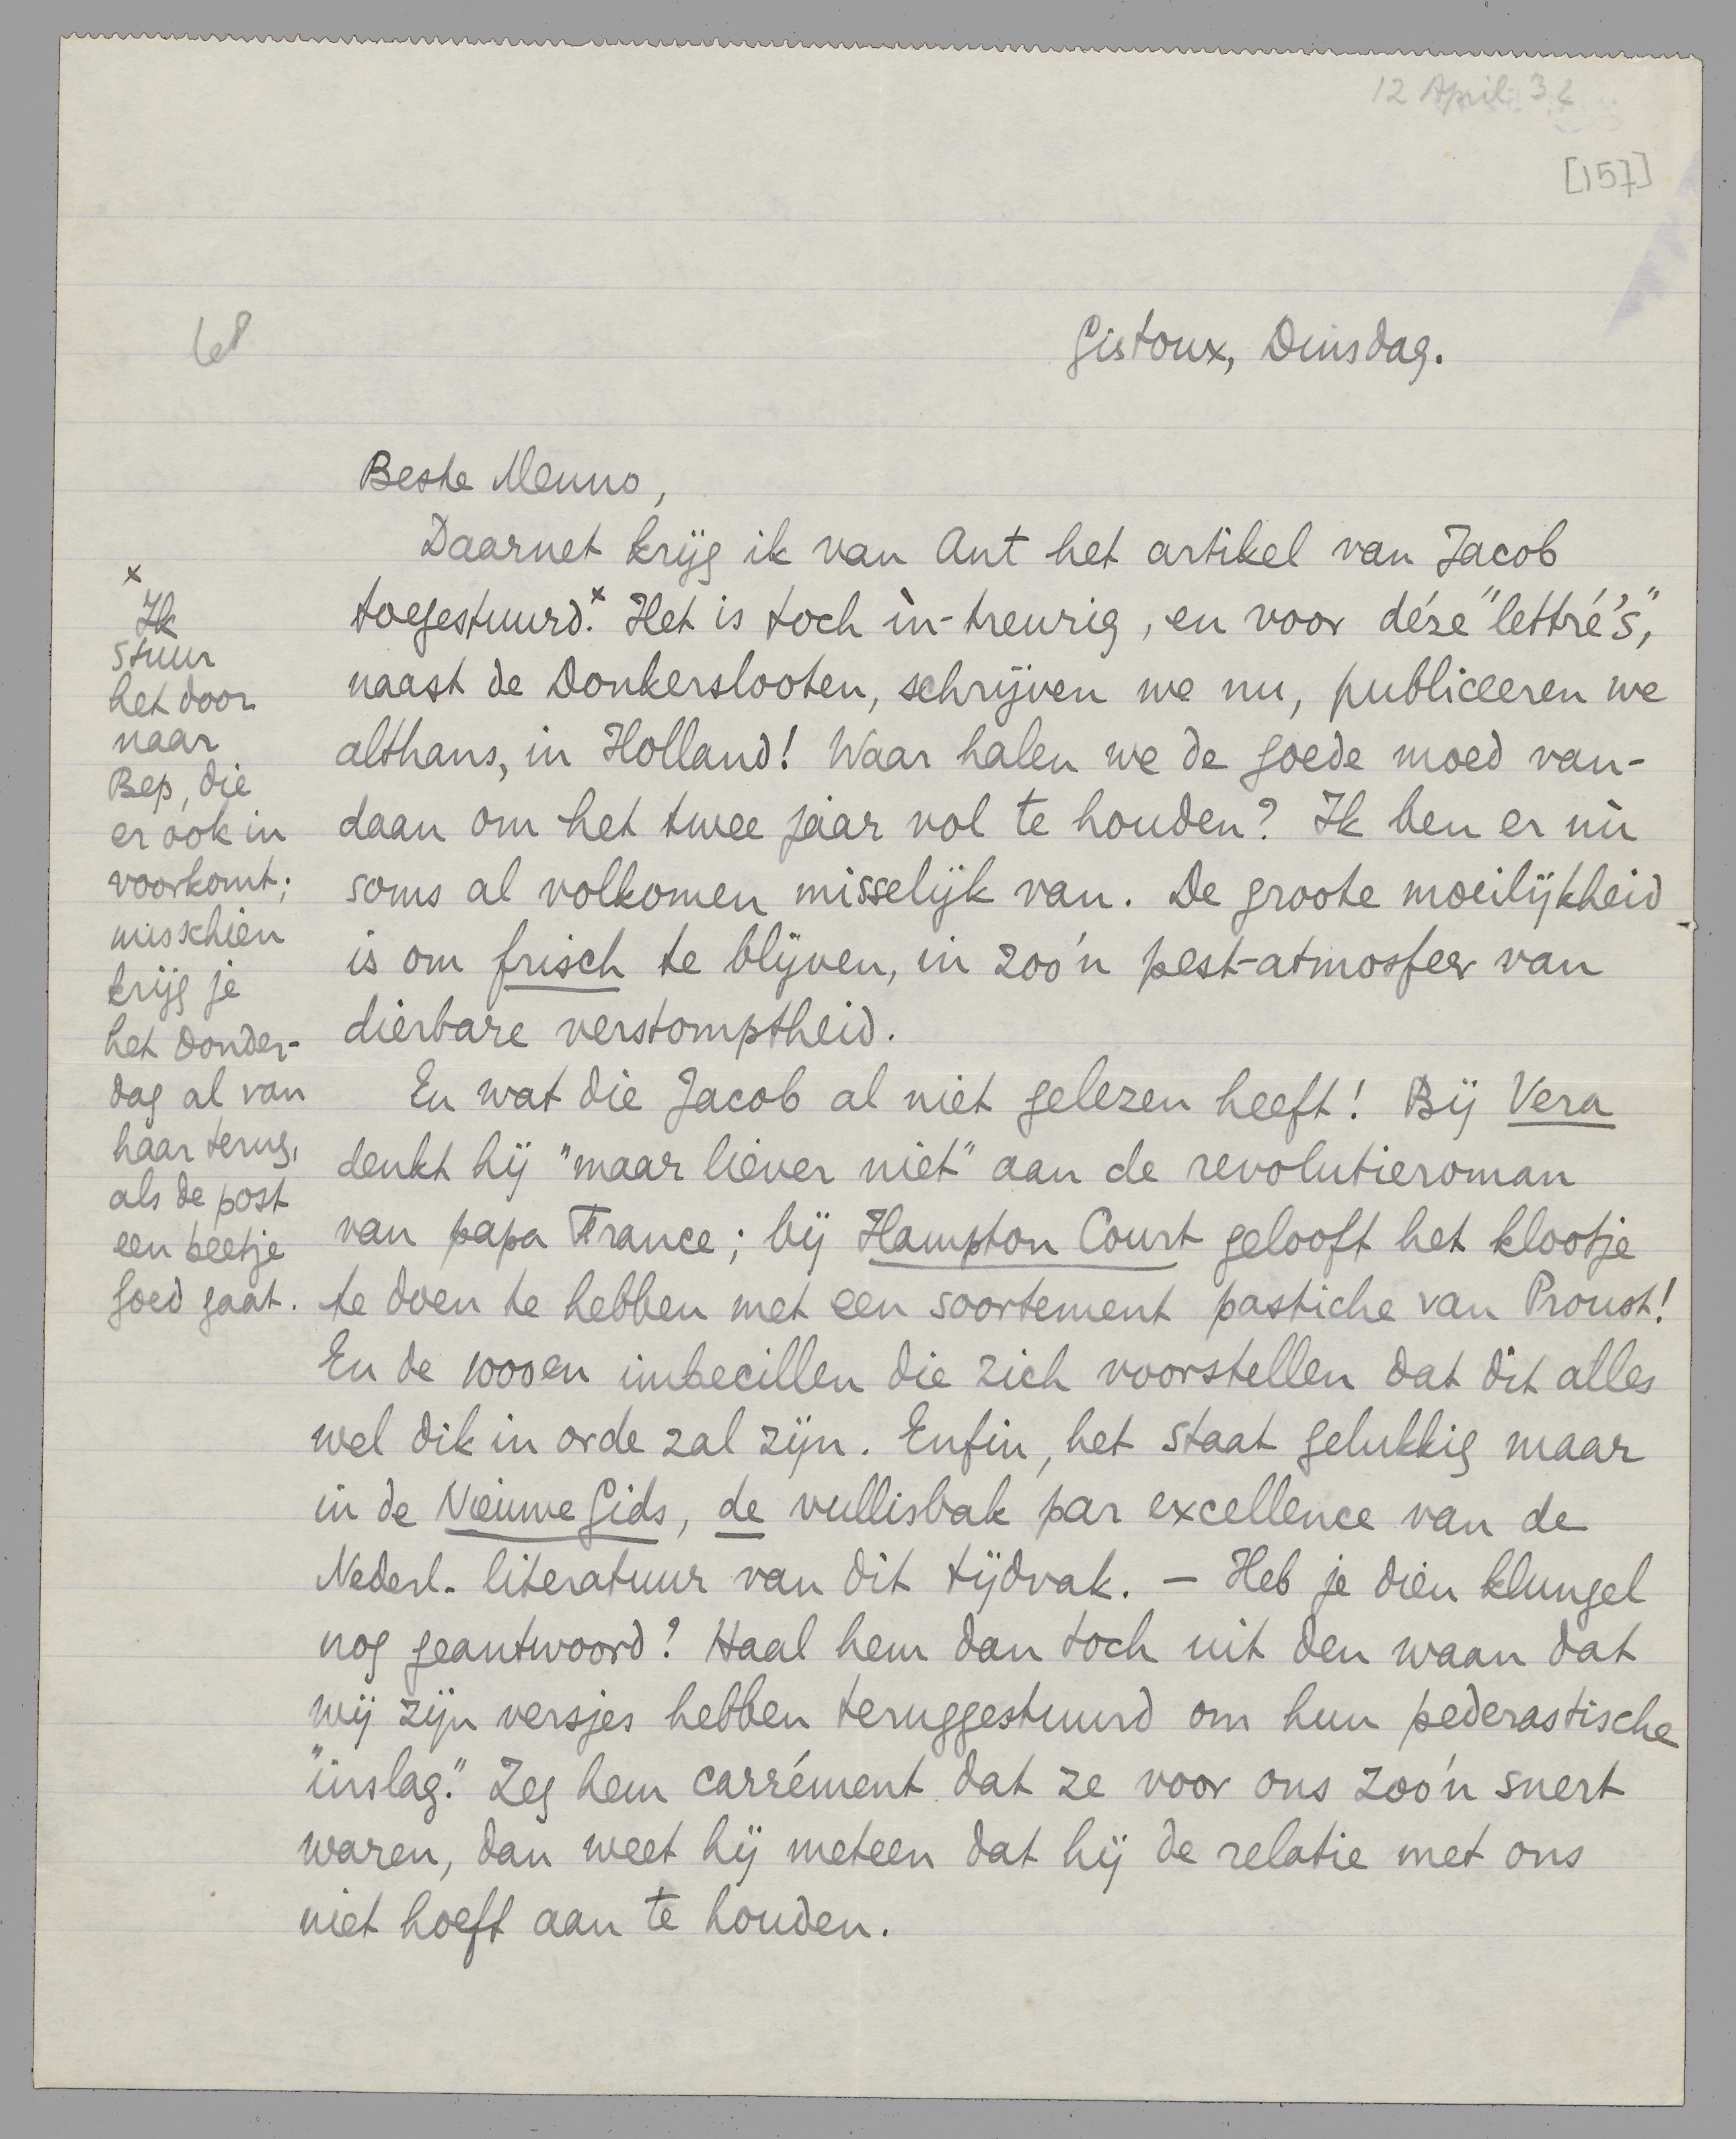 12 April 32
[157]
68
Gistoux, Dinsdag.
Beste Menno,
Daarnet krijg ik van Ant het artikel van Jacob
toegestuurd.x Het is toch ìn-treurig, en voor déze "lettré's",
naast de Donkerslooten, schrijven we nu, publiceeren we
althans, in Holland! Waar halen we de goede moed van-
daan om het twee jaar vol te houden? Ik ben er nù
soms al volkomen misselijk van. De groote moeilijkheid
is om frisch te blijven, in zoo'n pest-atmosfeer van
dierbare verstomptheid.
En wat die Jacob al niet gelezen heeft! Bij Vera
denkt hij "maar liever niet" aan de revolutieroman
van papa France; bij Hampton Court gelooft het klootje
te doen te hebben met een soortement pastiche van Proust!
En de 1000en imbecillen die zich voorstellen dat dit alles
wel dik in orde zal zijn. Enfin, het staat gelukkig maar
in de Nieuwe Gids, de vullisbak par excellence van de
Nederl. literatuur van dit tijdvak. — Heb je dien klungel
nog geantwoord? Haal hem dan toch uit den waan dat
wij zijn versjes hebben teruggestuurd om hun pederastische
"inslag." Zeg hem carrément dat ze voor ons zoo'n snert
waren, dan weet hij meteen dat hij de relatie met ons
niet hoeft aan te houden.
x
Ik
stuur
het door
naar
Bep, die
er ook in
voorkomt;
misschien
krijg je
het Donder-
dag al van
haar terug,
als de post
een beetje
goed gaat.